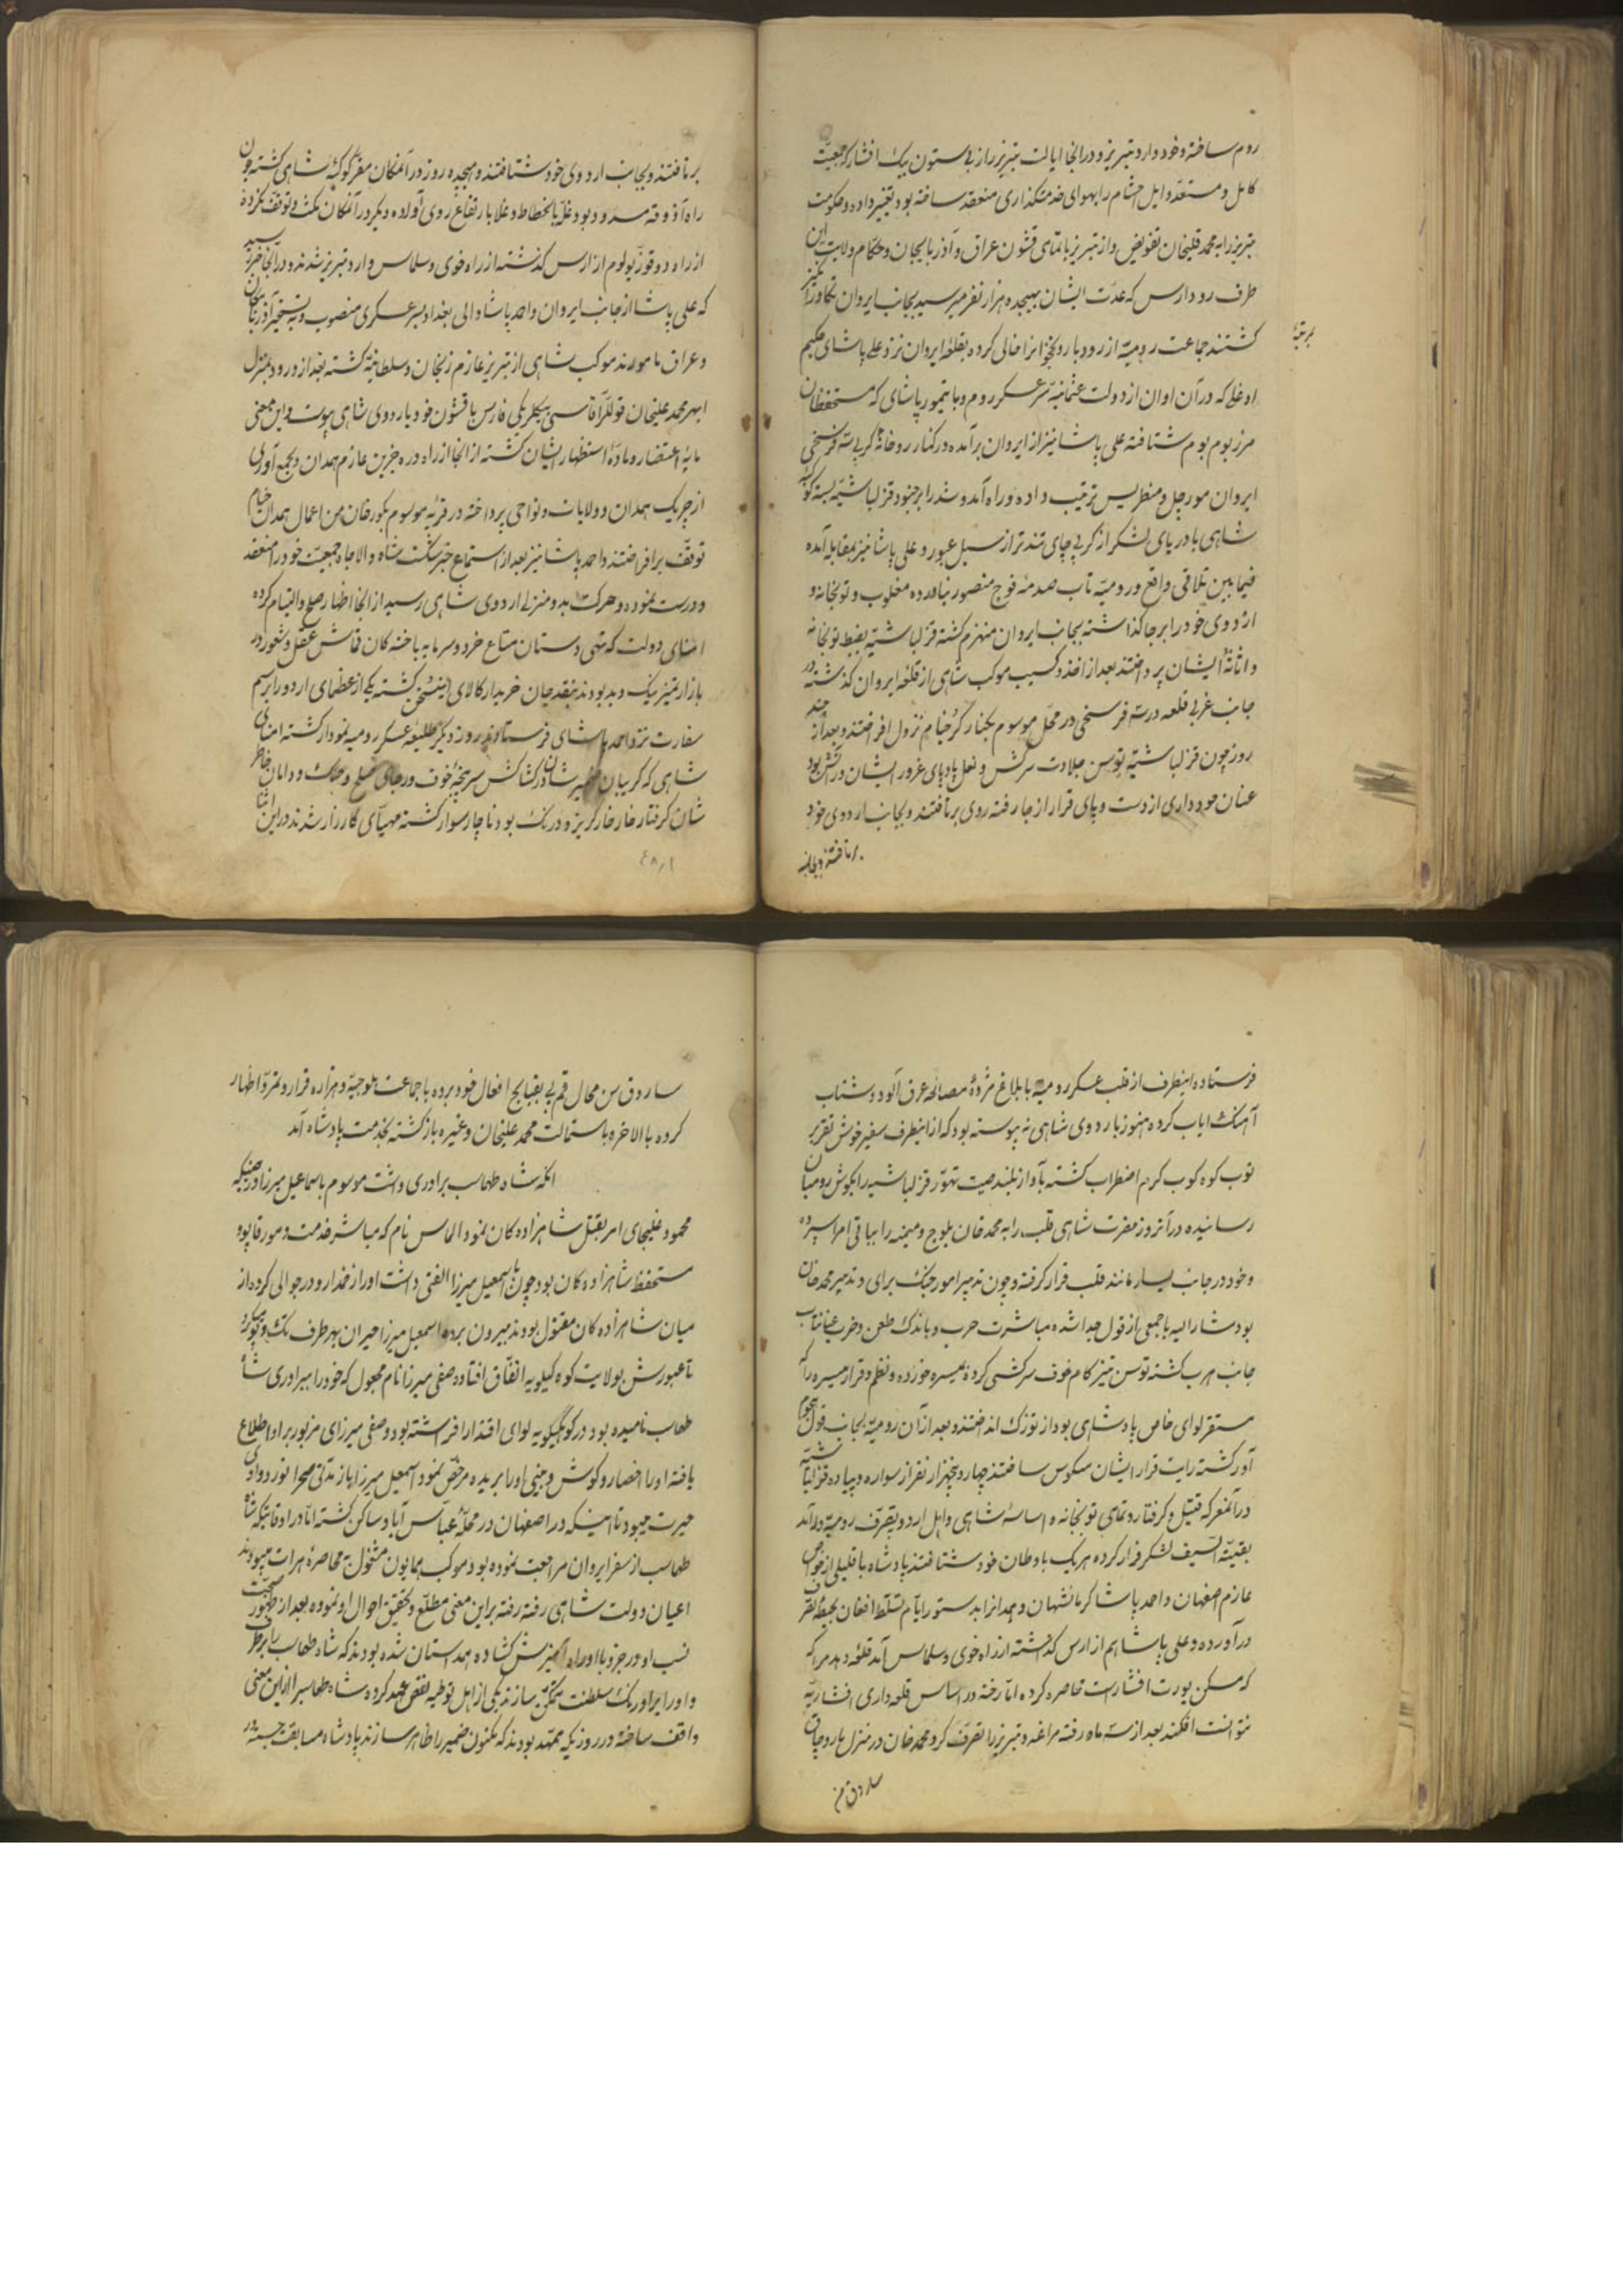 روم ساخته و خود وارد تبریز و در آنجا ایالت تبریز را از بی ستون بیک افشار که جمعیت
کامل و مستعد و ایل حشام را بهوای خدمتکذاری منعقد ساخته بود تغییر داده و حکومت
تبریز را به محمد قلیخان تفویض و از تبریز با تمامی قشون عراق و آذربایجان و حکام ولایت این
طرف رود ارس که عدت ایشان بهیجده هزار نفر میرسید بجانب ایروان تکاور انکیز
کشتند جماعت رومیه از رودبار و نخجوانرا خالی کرده بقلعه ایروان نزد علی پاشای حکیم
اوغلی که در آن اوان از دولت عثمانیه سرعسکر روم و با تیمور پاشای که مستحفظان
مرز بوم بوم شتافته علی پاشا نیز از ایروان برآمده در کنار رودخانه کربی سه فرسخی
ایروان مورچل و مطریس ترتیب داده و راه آمد و شد را بر جنود قزلباشیه بسته کوکبه
شاهی با دریای لشکر از کربی چای تندتر از سیل عبور و علی پاشا نیز بمقابله آمده
فیما بین تلاقی واقع و رومیه تاب صدمه فوج منصور نیاورده مغلوب و توپخانه و
اردوی خود را برجا کذاشته بجانب ایروان منهزم کشته قزلباشیه بضبط توپخانه
و اثاثه ایشان پرداختند بعد از اخذ و کسیب موکب شاهی از قلعه ایروان کذشته در
جانب غربی قلعه در سه فرسخی در محل موسوم بکنار کر خیام نزول افراختند و بعد از چند
روز چون قزلباشیه توسن جلادت سرکش و نعل پادپای غرور ایشان در آتش بود
عنان خودداری از دست و پای قرار از جا رفته روی برتافتند و بجانب اردوی خود
برتافتند و بجانب
برتافتند و بجانب اردوی خود شتافتند و هیجده روز در آنمکان مقر کوکبه شاهی کشته چون
راه آذوقه مسدود بود غله بانحطاط و غلا بارتفاع روی آورده دیکر در آنمکان مکث و توقف نکرده
از راه دوقوز بولوم از ارس کذشته از راه خوی و سلماس وارد تبریز شدند و در آنجا خبر رسید
که علی پاشا از جانب ایروان و احمد پاشا والی بغداد بسرعسکری منصوب و به تسخیر آذربایجان
و عراق مامورند موکب شاهی از تبریز عازم زنجان و سلطانیه کشته بعد از ورود بمنزل
ابهر محمد علیخان قوللر آقاسی بیکلربیکی فارس با قشون خود باردوی شاهی پیوست و این معنی
مایه اعتضاد و ماده استظهار ایشان کشته از آنجا از راه دره جزین عازم همدان و بجمع آوری
ایلجاری همدان و ولایات و نواحی پرداخته در قریه موسوم بکوردخان من اعمال همدان خیام
توقف برافراختند و احمد پاشا نیز بعد از استماع خبر شکست شاه والاجاه جمعیت خود را منعقد
و درست نموده و حرکت بدو منزلی اردوی شاهی رسید از آنجا اظهار صلح و التیام کرده
امنای دولت که تهی دستان متاع خرد و سرمایه باخته کان قماش عقل و شعور در
بازار تمیز نیک و بد بودند بنقد جان خریدار کالای این سخن کشته یکی از عظمای اردو را برسم
سفارت نزد احمد پاشای فرستادند روز دیکر طلیعه عسکر رومیه نمودار کشته امنای
شاهی که کریبان ضمیر شان در کشاکش سرپنجه خوف و رجای صلح و جنک و دامان خاطر
شان کرفتار خار خار کریز و درنک بود ناچار سوار کشته مهیای کارزار شدند در این اثنا
فرستاده اینطرف از قلب عسکر رومیه با بلاغ مژده مصالحه عرق آلود و شتاب
آهنک ایاب کرده هنوز باردوی شاهی نه پیوسته بود که از آنطرف سفیر خوش تقریر
توپ کوه کوب کرم اضطراب کشته بآواز بلند صیت تهور قزلباشیه را بکوش رومیان
رسانیده در آنروز حضرت شاهی قلب را به محمد خان بلوچ و میمنه را بباقی امرا سپرده
و خود در جانب یسار مانند قلب قرار کرفته و چون تدبیر امور جنک برای و تدبیر محمد خان
بود مشارالیه با جمعی از قول جدا شده مباشرت حرب و باندک طعن و ضرب عنانتاب
جانب هرب کشته توسن تیز کام خوف سرکشی کرده میسره خورده و نظم و قرار میسره را که
مستقر لوای خاص پادشاهی بود از توزک انداختند و بعد از آن رومیه بجانب قول هجوم
آور کشته رایت قرار ایشان منکوس ساختند چهار و پنجهزار نفر از سواره و پیاده قزلباشیه
در آنمعرکه قتیل و کرفتار و تمامی توپخانه و اساسه شاهی و اهل اردو بتصرف رومیه درآمد
بقیة السیف لشکر فرار کرده هر یک باوطان خود شتافتند پادشاه با قلیلی از خواص
عازم اصفهان و احمد پاشا کرمانشهان و همدانرا بدستور ایام تسلط افغان بحیطه تصرف
درآورده و علی پاشا هم از ارس کذشته از راه خوی و سلماس آمد قلعه دمدم را که
که مسکن یورت افشار است محاصره کرده اما رخنه در اساس قلعه داری افشاریه
نتوانست افکند بعد از سه ماه رفته مراغه و تبریز را تصرف کرد و محمد خان در منزل
ساروق من
ساروق من محال قم پی بقبایح افعال خود برده با جماعت بلوجیه و هزاره قرار و تمرد اظهار
کرده بالاخره باستمالت محمد علیخان و غیره بازکشته بخدمت پادشاه آمد
انکه شاه طهماسب برادری داشت موسوم باسماعیل میرزا در حینیکه
محمود غلیجای امر بقتل شاهزاده کان نمود الماس نام که مباشر خدمت و مور قاپو و
مستحفظ شاهزاده کان بود چون باسمعیل میرزا الفتی داشت او را از خدا رو در جوالی کرده از
میان شاهزاده کان مقتول بودند بیرون برده اسمعیل میرزا حیران بهر طرف تک و پو میکرد
تا عبورش بولایت کوه کیلویه اتفاق افتاد و صفی میرزا نام مجهول که خود را ببرادری شاه
طهماسب نامیده بود در کوه کیلویه لوای اقتدار افراشته بود و صفی میرزای مزبور بر او اطلاع
یافته او را احضار و کوش و بینی او را بریده مرخص نمود اسمعیل میرزا باز مدتی صحرا نورد وادی
حیرت میبود تا اینکه در اصفهان در محله عباس آباد ساکن کشته اما در اوقاتیکه شاه
طهماسب از سفر ایروان مراجعت نموده بود موکب همایون مشغول به محاصره هرات میبودند
اعیان دولت شاهی رفته رفته بر این معنی مطلع و تحقیق احوال او نموده بعد از ظهور صحت
نسب او در جزو با او راه آمیزش کشاده همداستان شده بودند که شاه طهماسب را برطرف
و او را بر اورنک سلطنت متمکن سازند یکی از اهل توطیه نقض عهد کرده شاه طهماسب را از این معنی
واقف ساخته در روزیکه ممهد بودند که مکنون ضمیر را ظاهر سازند پادشاه مسابقت جسته در